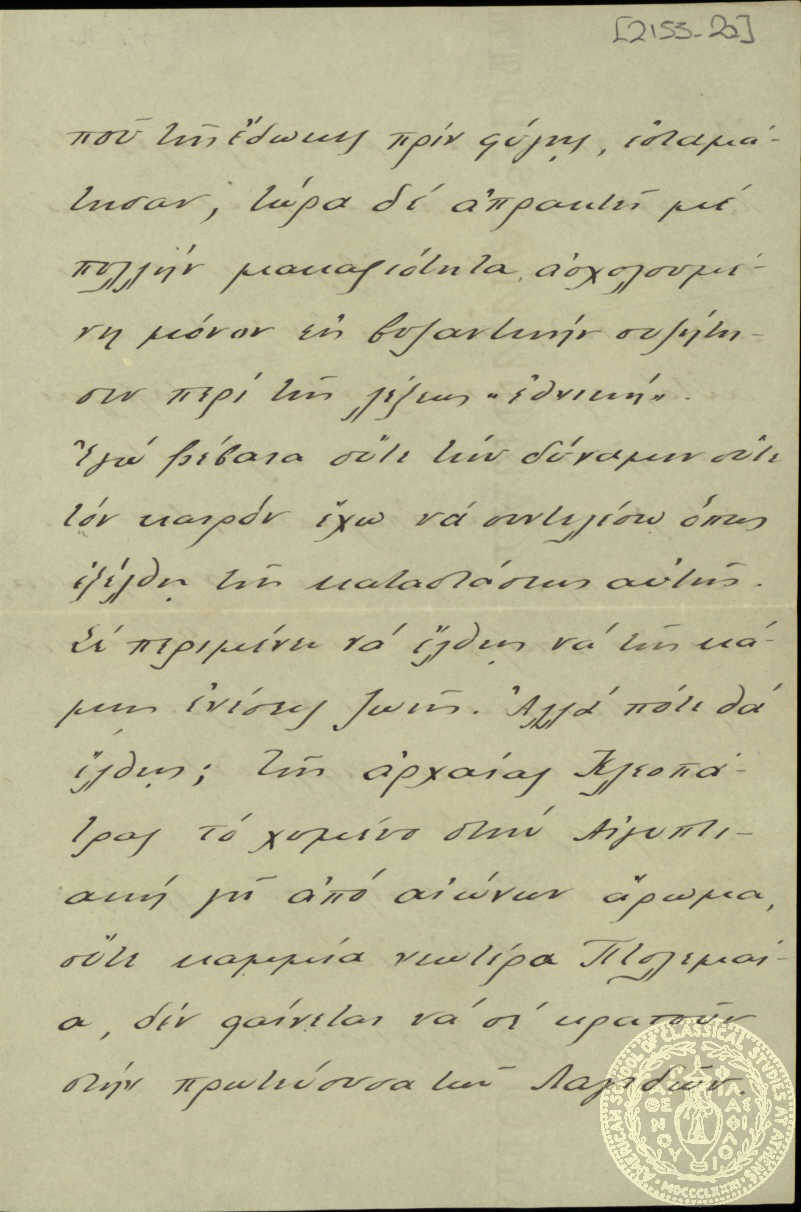 [2153-2α]
ποῦ τῆς ἔδωκες πρίν φύγῃς, ἐσταμά-
τησαν, τώρα δέ ἀπρακτεῖ μέ
πολλήν μακαριότητα, ἀσχολουμέ-
νη μόνον εἰς βυζαντινήν συζήτη-
σιν περί τῆς λέξεως "ἐθνική".
Ἐγώ βέβαια οὔτε τήν δύναμιν οὔτε
τόν καιρόν ἔχω νά συντελέσω ὅπως
ἐξέλθῃ τῆς καταστάσεως αὐτῆς.
Σέ περιμένει νά ἔλθῃς νά τῆς κά-
μῃς ἐνέσεις ζωῆς. Ἀλλά πότε θά
ἔλθῃς; τῆς ἀρχαίας Κλεοπά-
τρας τό χυμένο στήν Αἰγυπτι-
ακή γῆ ἀπό αἰώνων ἄρωμα,
οὔτε καμμιά νεωτέρα Πτολεμαί-
α, δέν φαίνεται νά σέ κρατοῦν
στήν πρωτεύουσα τῶν Λαγιδῶν.
AMERICAN SCHOOL OF CLASSICAL STUDIES AT ATHENS
MDCCCLXXXI